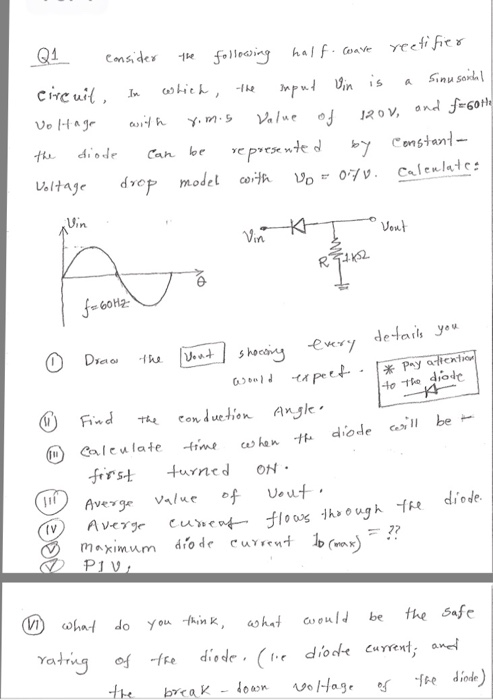 Q1 Consider the following half-wave rectifier
circuit, In which, the input Vin is a Sinusoidal
Voltage with r.m.s Value of 120V, and f=60Hz
the diode Can be represented by Constant-
Voltage drop model with VD = 0.7V. Calculate:
Vin
θ
f=60Hz
Vin
Vout
R
1kΩ
(I) Draw the Vout showing every details you
would expect.
* Pay attention
to the diode
(II) Find the conduction Angle.
(III) Calculate time when the diode will be
first turned ON.
(III) Averge value of Vout.
(IV) Averge current flows through the diode.
(V) Maximum diode current ID(max) = ??
(V) PIV,
(VI) what do you think, what would be the safe
rating of the diode. (i.e diode current; and
the break-down voltage of the diode)